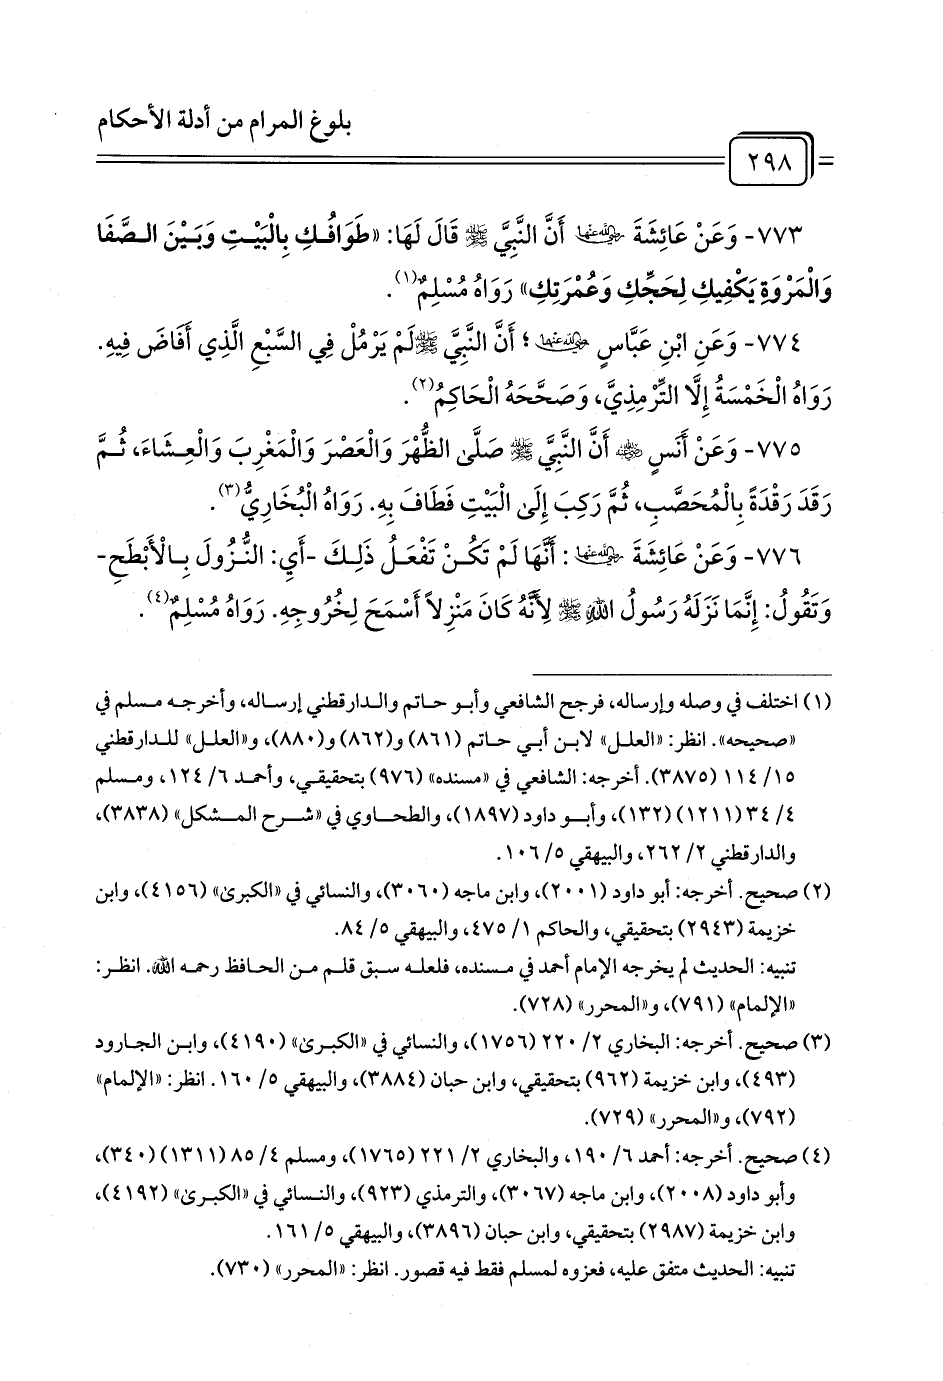 بلوغ المرام من أدلة الأحكام
٢٩٨
٧٧٣- وَعَنْ عَائِشَةَ رضي الله عنها أَنَّ النَّبِيَّ ﷺ قَالَ لَهَا: «طَوَافُكِ بِالْبَيْتِ وَبَيْنَ الصَّفَا
وَالْمَرْوَةِ يَكْفِيكِ لِحَجِّكِ وَعُمْرَتِكِ» رَوَاهُ مُسْلِمٌ(١).
٧٧٤- وَعَنِ ابْنِ عَبَّاسٍ رضي الله عنهما؛ أَنَّ النَّبِيَّ ﷺ لَمْ يَرْمُلْ فِي السَّبْعِ الَّذِي أَفَاضَ فِيهِ.
رَوَاهُ الْخَمْسَةُ إِلَّا التِّرْمِذِيَّ، وَصَحَّحَهُ الْحَاكِمُ(٢).
٧٧٥- وَعَنْ أَنَسٍ رضي الله عنه أَنَّ النَّبِيَّ ﷺ صَلَّى الظُّهْرَ وَالْعَصْرَ وَالْمَغْرِبَ وَالْعِشَاءَ، ثُمَّ
رَقَدَ رَقْدَةً بِالْمُحَصَّبِ، ثُمَّ رَكِبَ إِلَى الْبَيْتِ فَطَافَ بِهِ. رَوَاهُ الْبُخَارِيُّ(٣).
٧٧٦- وَعَنْ عَائِشَةَ رضي الله عنها: أَنَّهَا لَمْ تَكُنْ تَفْعَلُ ذَلِكَ -أَي: النُّزُولَ بِالْأَبْطَحِ-
وَتَقُولُ: إِنَّمَا نَزَلَهُ رَسُولُ اللهِ ﷺ لِأَنَّهُ كَانَ مَنْزِلاً أَسْمَحَ لِخُرُوجِهِ. رَوَاهُ مُسْلِمٌ(٤).
(١) اختلف في وصله وإرساله، فرجح الشافعي وأبو حاتم والدارقطني إرساله، وأخرجه مسلم في
«صحيحه». انظر: «العلل» لابن أبي حاتم (٨٦١) و(٨٦٢) و(٨٨٠)، و«العلل» للدارقطني
١٥/ ١١٤ (٣٨٧٥). أخرجه: الشافعي في «مسنده» (٩٧٦) بتحقيقي، وأحمد ٦/ ١٢٤، ومسلم
٤/ ٣٤ (١٢١١) (١٣٢)، وأبو داود (١٨٩٧)، والطحاوي في «شرح المشكل» (٣٨٣٨)،
والدارقطني ٢/ ٢٦٢، والبيهقي ٥/ ١٠٦.
(٢) صحيح. أخرجه: أبو داود (٢٠٠١)، وابن ماجه (٣٠٦٠)، والنسائي في «الكبرى» (٤١٥٦)، وابن
خزيمة (٢٩٤٣) بتحقيقي، والحاكم ١/ ٤٧٥، والبيهقي ٥/ ٨٤.
تنبيه: الحديث لم يخرجه الإمام أحمد في مسنده، فلعله سبق قلم من الحافظ رحمه الله. انظر:
«الإلمام» (٧٩١)، و«المحرر» (٧٢٨).
(٣) صحيح. أخرجه: البخاري ٢/ ٢٢٠ (١٧٥٦)، والنسائي في «الكبرى» (٤١٩٠)، وابن الجارود
(٤٩٣)، وابن خزيمة (٩٦٢) بتحقيقي، وابن حبان (٣٨٨٤)، والبيهقي ٥/ ١٦٠. انظر: «الإلمام»
(٧٩٢)، و«المحرر» (٧٢٩).
(٤) صحيح. أخرجه: أحمد ٦/ ١٩٠، والبخاري ٢/ ٢٢١ (١٧٦٥)، ومسلم ٤/ ٨٥ (١٣١١) (٣٤٠)،
وأبو داود (٢٠٠٨)، وابن ماجه (٣٠٦٧)، والترمذي (٩٢٣)، والنسائي في «الكبرى» (٤١٩٢)،
وابن خزيمة (٢٩٨٧) بتحقيقي، وابن حبان (٣٨٩٦)، والبيهقي ٥/ ١٦١.
تنبيه: الحديث متفق عليه، فعزوه لمسلم فقط فيه قصور. انظر: «المحرر» (٧٣٠).